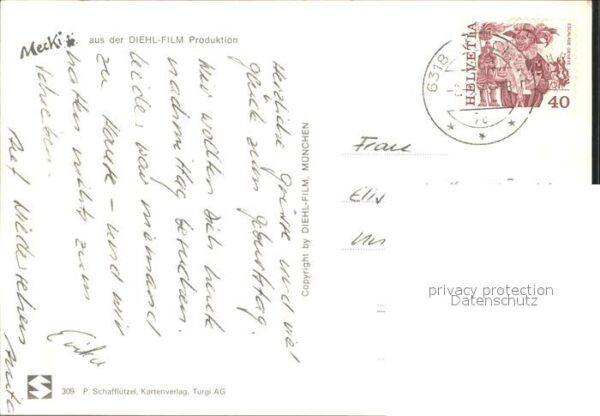 Mecki
aus der DIEHL-FILM Produktion
Herzliche Grüsse und viel
Glück zum Geburtstag.
Wir wollten Dich heute
nachmittag besuchen.
Leider war niemand
zu Hause - und wir
hatten nichts zum
schreiben.
Auf Wiedersehen
Anita
Erika
Copyright by DIEHL-FILM, MÜNCHEN
6318
HELVETIA
ESCALADE GENEVE
40
Frau
privacy protection
Datenschutz
309 P. Schafflützel, Kartenverlag, Turgi AG